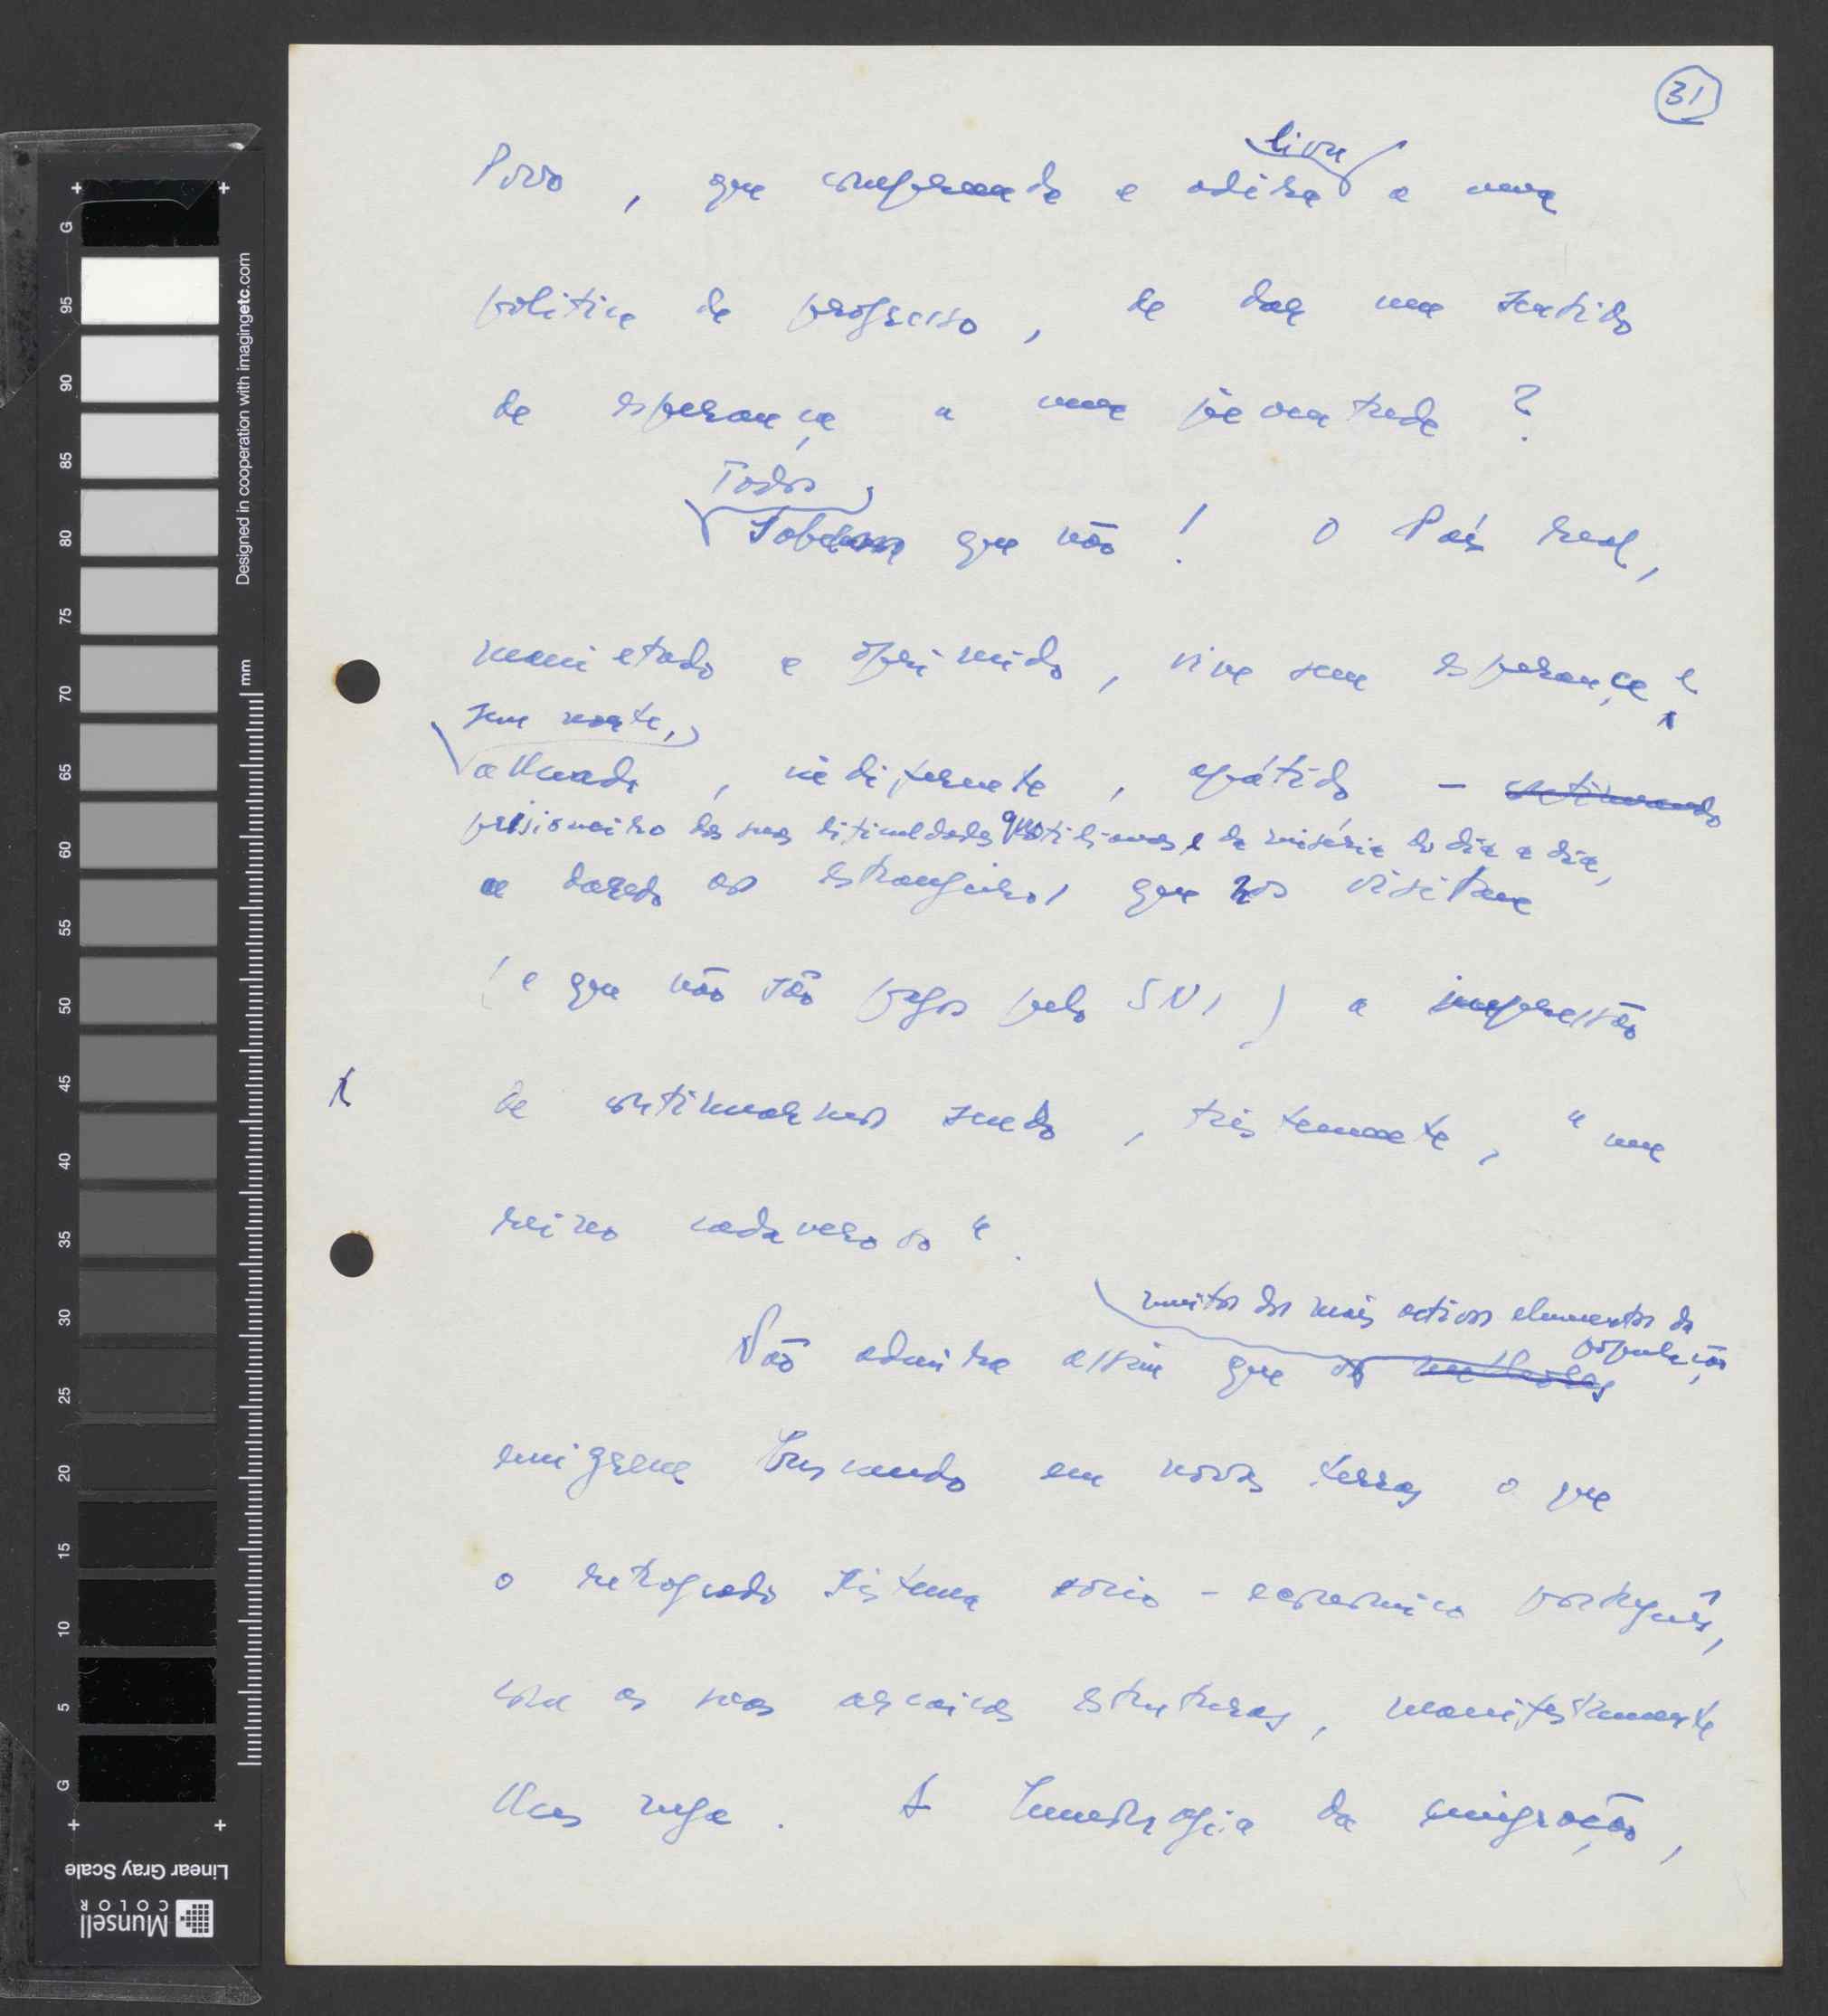 31
livre
Povo, que compreenda e adira a uma
politica de progresso, de dar um sentido
de esperança a uma juventude?
Todos
Sabemos que não! O País real,
manietado e oprimido, vive sem esperança e
sem norte,
alheado, indiferente, apático - continuando
prisioneiro das suas dificuldades quotidianas e da miséria do dia a dia,
e dando aos estrangeiros que nos visitam
(e que não são pagos pelo SNI) a impressão
de continuarmos sendo, tristemente, "um
reino cadaveroso".
muitos dos mais activos elementos da
população
Não admira assim que os melhores
emigrem buscando em novas terras o que
o retrogrado sistema sócio-económico português,
com as suas arcaicas estruturas, manifestamente
lhes nega. A hemorragia da emigração,
Designed in cooperation with imagingetc.com
mm
G
95
90
85
80
75
70
65
60
55
50
45
40
35
30
25
20
15
10
5
G
Linear Gray Scale
Munsell
COLOR